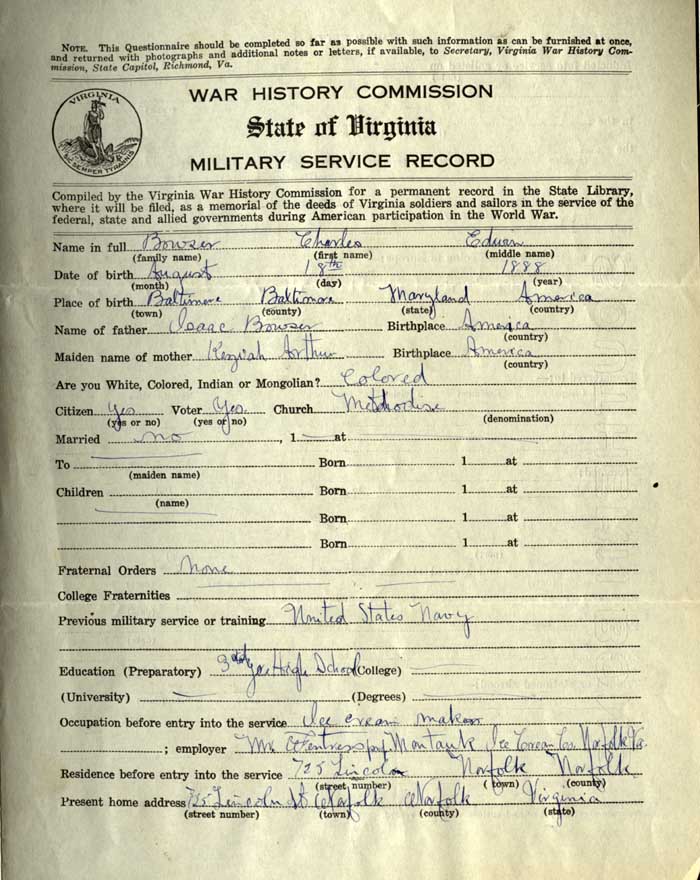 NOTE. This Questionnaire should be completed so far as possible with such information as can be furnished at once,
and returned with photographs and additional notes or letters, if available, to Secretary, Virginia War History Com-
mission, State Capitol, Richmond, Va.
VIRGINIA
SIC SEMPER TYRANNIS
WAR HISTORY COMMISSION
State of Virginia
MILITARY SERVICE RECORD
Compiled by the Virginia War History Commission for a permanent record in the State Library,
where it will be filed, as a memorial of the deeds of Virginia soldiers and sailors in the service of the
federal, state and allied governments during American participation in the World War.
Name in full Bowser Charles Edwan
(family name) (first name) (middle name)
Date of birth August 18th 1888
(month) (day) (year)
Place of birth Baltimore Baltimore Maryland America
(town) (county) (state) (country)
Name of father Isaac Bowser Birthplace America
(country)
Maiden name of mother Keziah Arthur Birthplace America
(country)
Are you White, Colored, Indian or Mongolian? Colored
Citizen Yes Voter Yes. Church Methodise
(yes or no) (yes or no) (denomination)
Married no, 1 at
To Born 1 at
(maiden name)
Children Born 1 at
(name)
Born 1 at
Born 1 at
Fraternal Orders None
College Fraternities
Previous military service or training United States Navy
Education (Preparatory) 3 High School (College)
(University) (Degrees)
Occupation before entry into the service Ice cream maker
; employer Montauk Ice Cream Co. Norfolk Va.
Residence before entry into the service 725 Lincoln Norfolk Norfolk
(street number) (town) (county)
Present home address 725 Lincoln St Norfolk Norfolk Virginia
(street number) (town) (county) (state)